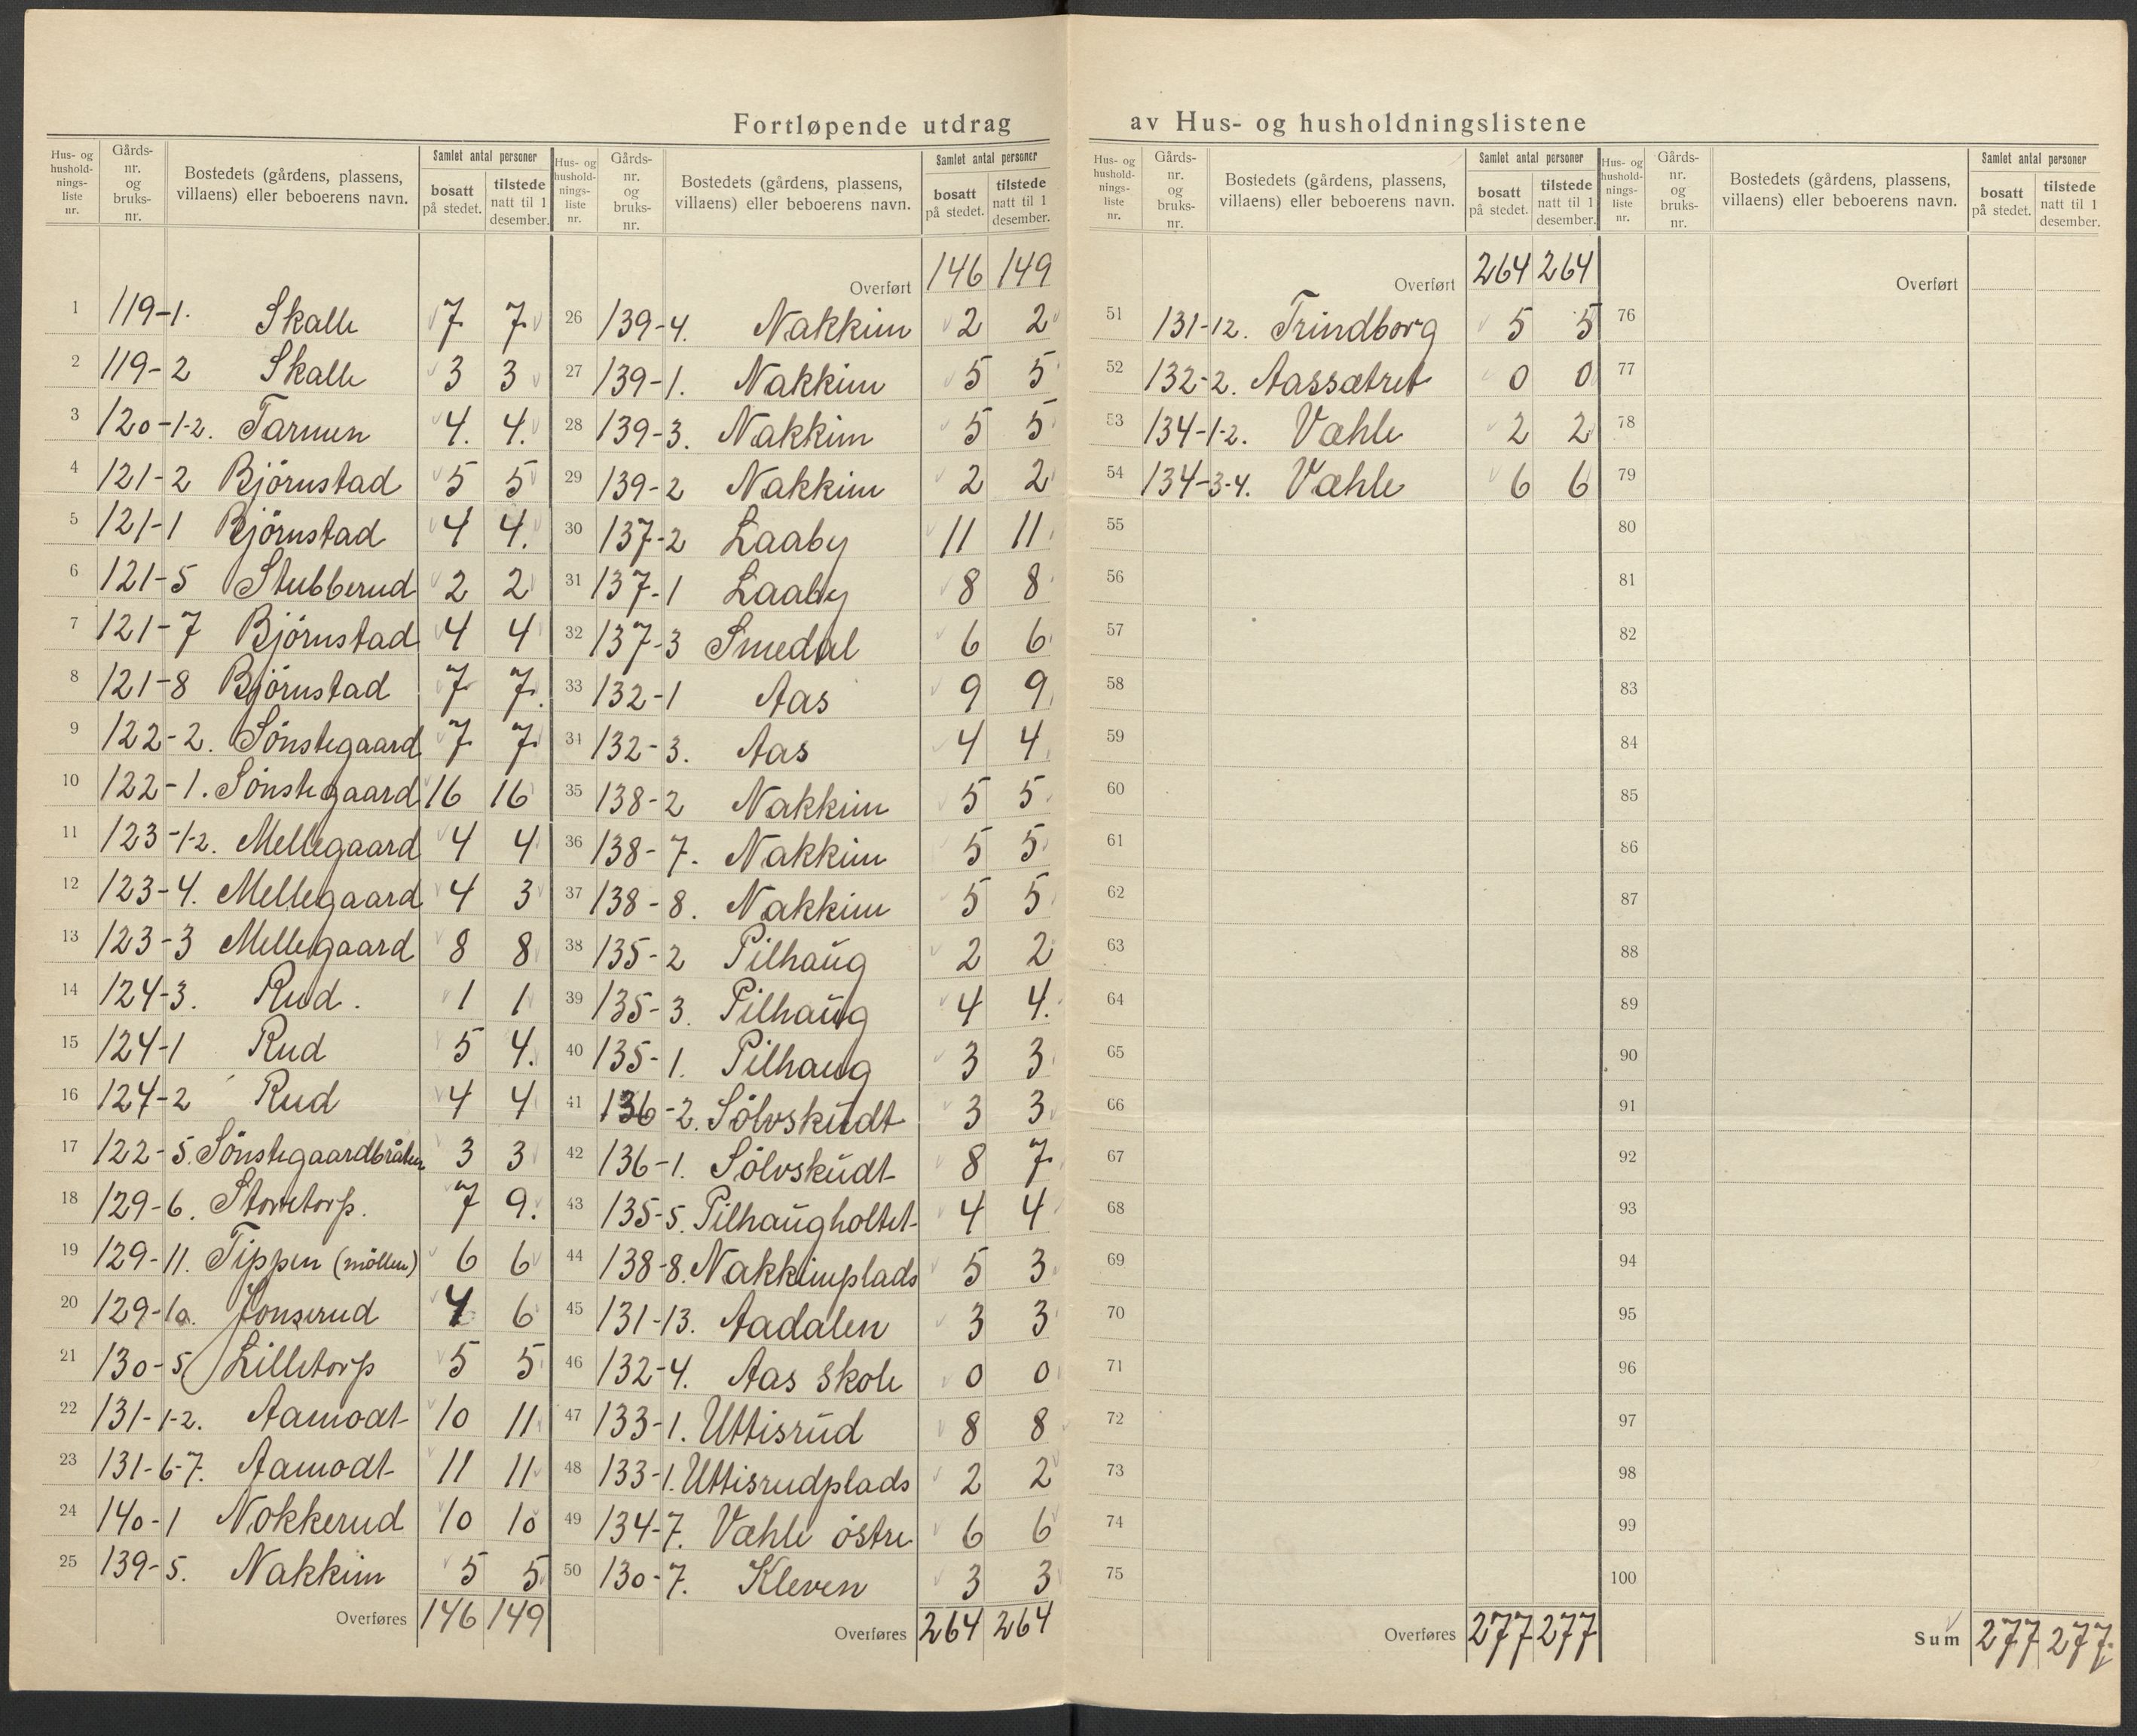 Fortløpende utdrag av Hus- og husholdningslistene
Hus- og husholdnings-liste nr. Gårds-nr. og bruks-nr. Bostedets (gårdens, plassens, villaens) eller beboerens navn. Samlet antal personer bosatt på stedet. tilstede natt til 1 desember.
1 119-1. Skalle 7 7
2 119-2 Skalle 3 3
3 120-1-2. Tarmen 4. 4.
4 121-2 Björnstad 5 5
5 121-1 Björnstad 4 4.
6 121-5 Stubberud 2 2
7 121-7 Björnstad 4 4
8 121-8 Björnstad 7 7.
9 122-2. Sönstegaard 7 7
10 122-1. Sönstegaard 16 16
11 123-1-2. Mellegaard 4 4
12 123-4. Mellegaard 4 3
13 123-3 Mellegaard 8 8
14 124-3. Rud. 1 1
15 124-1 Rud 5 4.
16 124-2 Rud 4 4
17 122-5. Sönstegaardbråten 3 3
18 129-6. Storetorp. 7 9.
19 129-11. Tippen (möllen) 6 6
20 129-1a. Jonserud 4 6
21 130-5 Lilletorp 5 5
22 131-1-2. Aamodt 10 11
23 131-6-7. Aamodt 11 11
24 140-1 Nokkerud 10 10
25 139-5. Nakkim 5 5
Overføres 146 149
Hus- og husholdnings-liste nr. Gårds-nr. og bruks-nr. Bostedets (gårdens, plassens, villaens) eller beboerens navn. Samlet antal personer bosatt på stedet. tilstede natt til 1 desember.
Overført 146 149
26 139-4. Nakkim 2 2
27 139-1. Nakkim 5 5
28 139-3. Nakkim 5 5
29 139-2 Nakkim 2 2
30 137-2 Laaby 11 11
31 137-1 Laaby 8 8
32 137-3 Smedal 6 6
33 132-1 Aas 9 9
34 132-3. Aas 4 4
35 138-2 Nakkim 5 5
36 138-7. Nakkim 5 5
37 138-8. Nakkim 5 5
38 135-2 Pilhaug 2 2
39 135-3. Pilhaug 4 4.
40 135-1. Pilhaug 3 3
41 136-2. Sölvskudt 3 3
42 136-1. Sölvskudt 8 7
43 135-5. Pilhaugholtet 4 4
44 138-8. Nakkimplads 5 3
45 131-13. Aadalen 3 3
46 132-4. Aas skole 0 0
47 133-1. Uttisrud 8 8
48 133-1. Uttisrudplads 2 2
49 134-7. Væhle östre 6 6
50 130-7. Kleven 3 3
Overføres 264 264
Hus- og husholdnings-liste nr. Gårds-nr. og bruks-nr. Bostedets (gårdens, plassens, villaens) eller beboerens navn. Samlet antal personer bosatt på stedet. tilstede natt til 1 desember.
Overført 264 264
51 131-12. Trindborg 5 5
52 132-2. Aassætret 0 0
53 134-1-2. Væhle 2 2
54 134-3-4. Væhle 6 6
55
56
57
58
59
60
61
62
63
64
65
66
67
68
69
70
71
72
73
74
75
Overføres 277 277
Hus- og husholdnings-liste nr. Gårds-nr. og bruks-nr. Bostedets (gårdens, plassens, villaens) eller beboerens navn. Samlet antal personer bosatt på stedet. tilstede natt til 1 desember.
Overført
76
77
78
79
80
81
82
83
84
85
86
87
88
89
90
91
92
93
94
95
96
97
98
99
100
Sum 277 277.